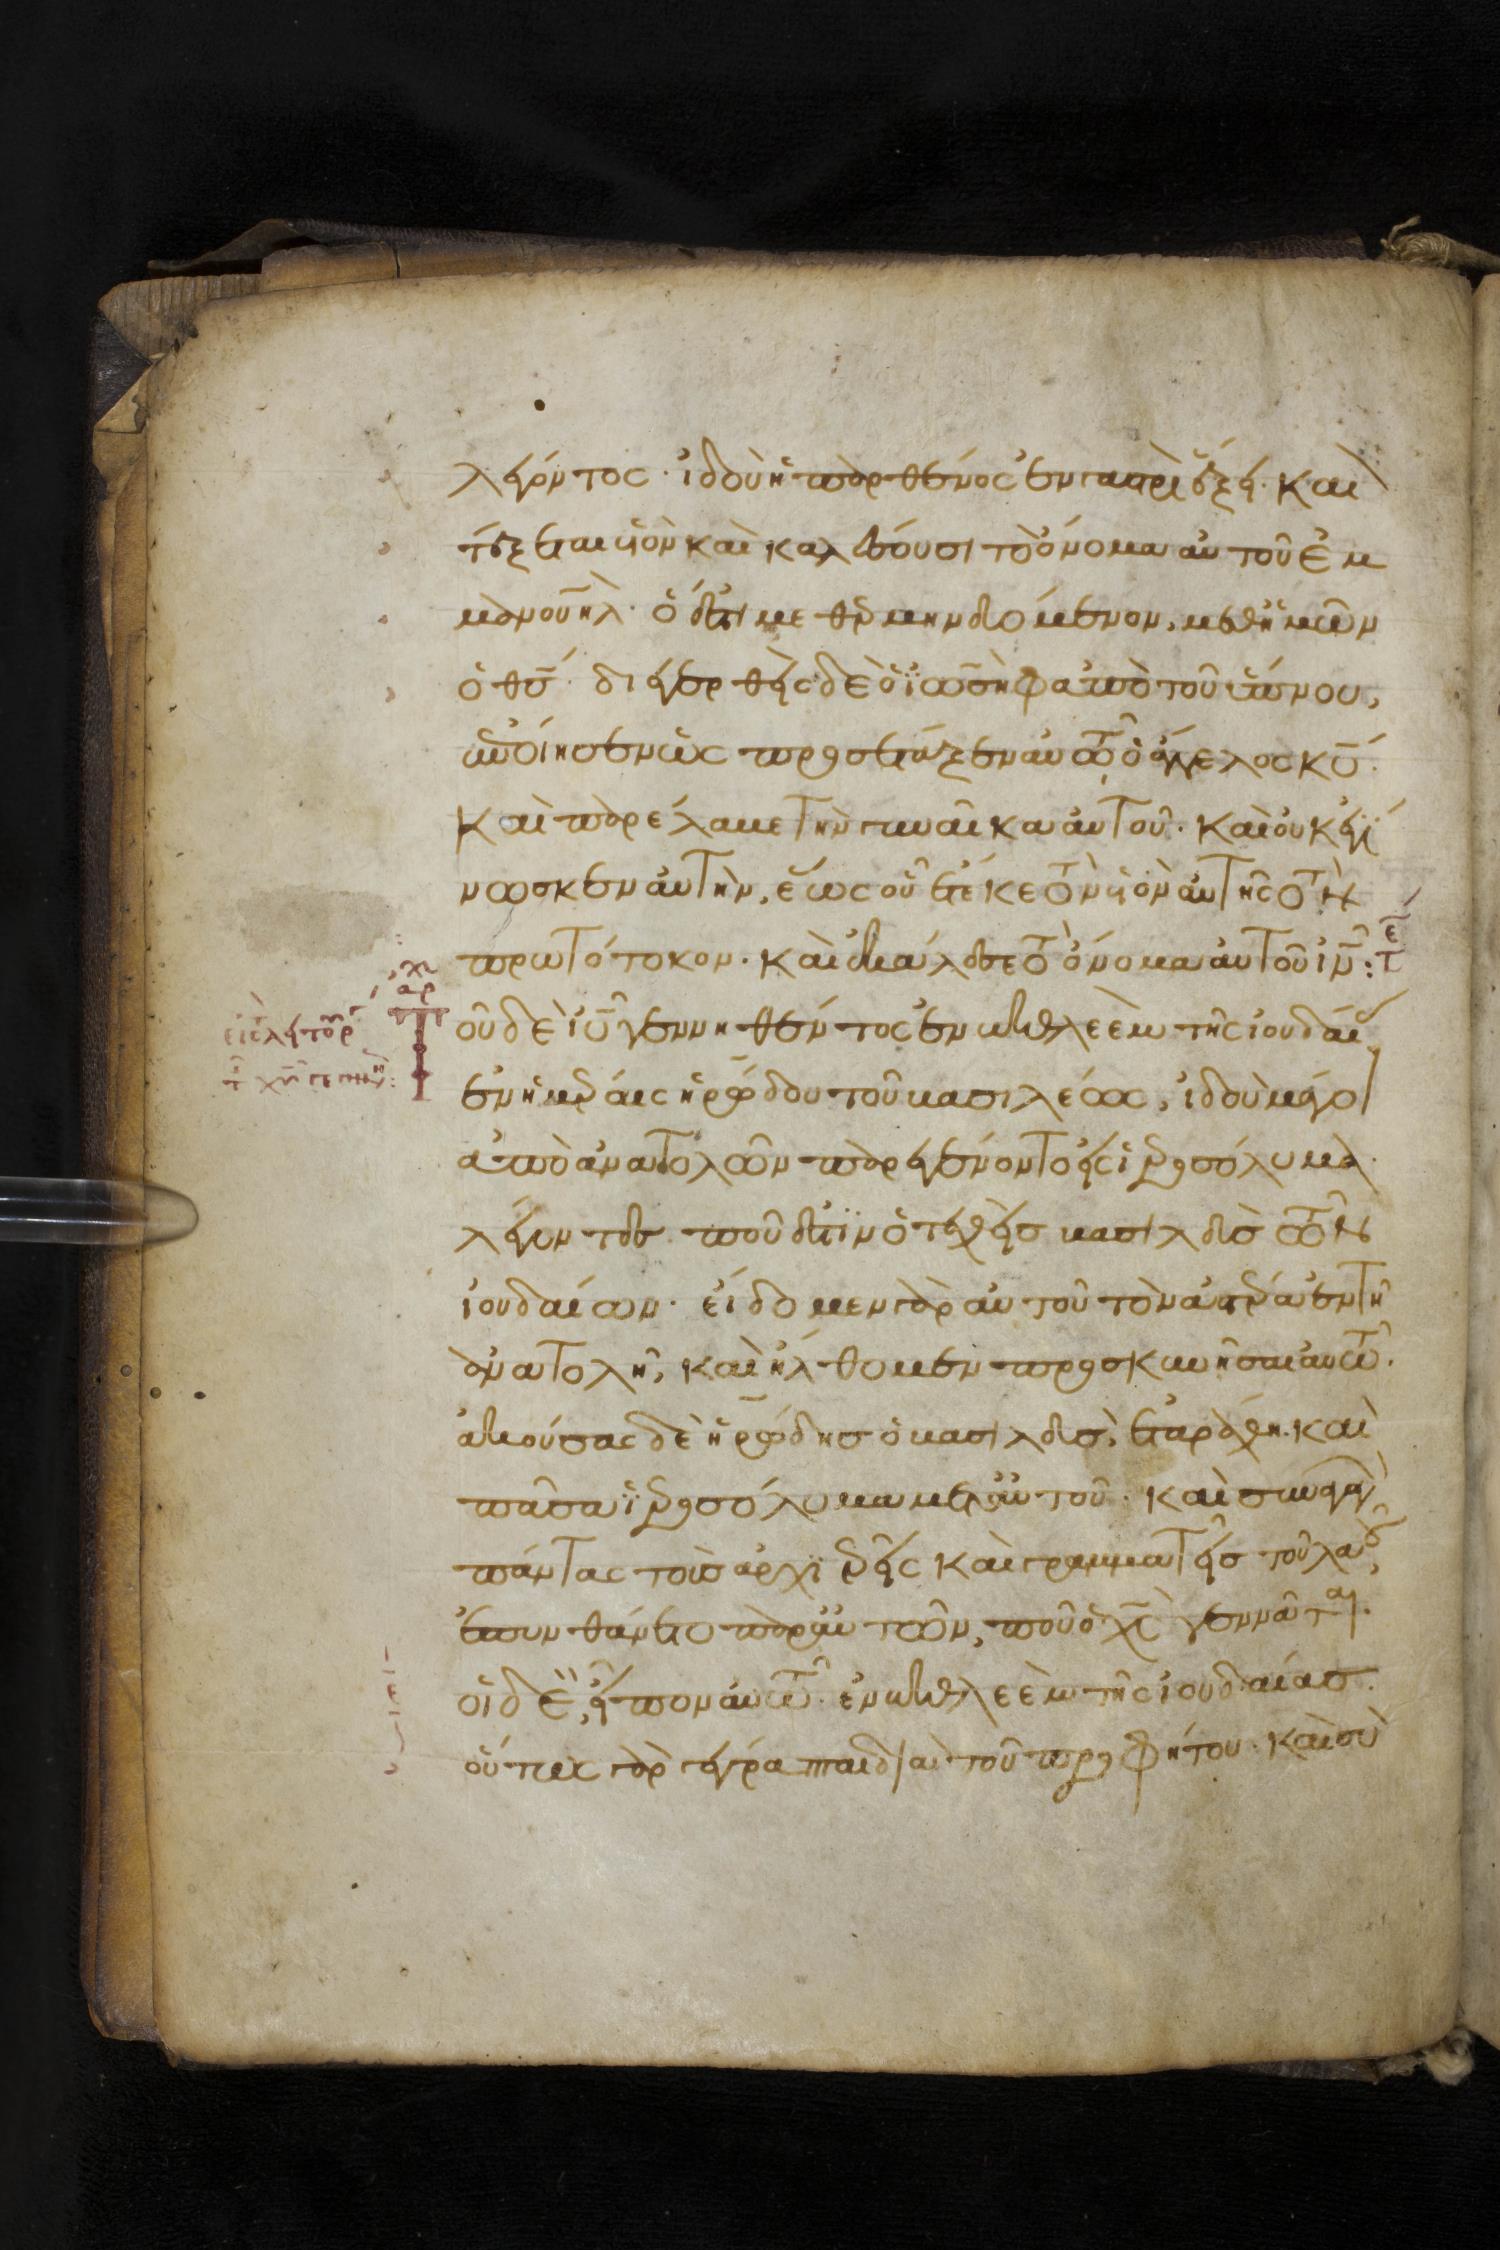 λέγοντος· ἰδοὺ ἡ παρθένος ἐν γαστρὶ ἕξει· καὶ
τέξεται υἱὸν καὶ καλέσουσι τὸ ὄνομα αὐτοῦ ἐμ
μανουὴλ· ὅ ἐστι μεθερμηνευόμενον, μεθ ἡμῶν
ὁ θς· διεγερθεὶς δὲ ὁ ϊωσὴφ ἀπὸ τοῦ ὕπνου,
ἐποίησεν ὡς προσέταξεν αὐτῶ ὁ ἄγγελος κυ·
καὶ παρέλαβε τὴν γυναῖκα αὐτοῦ· καὶ οὐκ ἐγί
νωσκεν αὐτὴν, ἕως οὗ ἔτεκε τὸν υἱὸν αὐτῆς τὸν
πρωτότοκον· καὶ ἐκάλεσε τὸ ὄνομα αὐτοῦ ιν:
τοῦ δὲ ιυ γεννηθέντος ἐν βηθλεὲμ τῆς ἰουδαί
ἐν ἡμέραις ἡρώδου τοῦ βασιλέως, ἰδοὺ μάγοι
ἀπὸ ἀνατολῶν παρεγένοντο εἰς ἱεροσόλυμα
λέγοντες· ποῦ ἐστϊν ὁ τεχθεὶς βασιλεὺς τῶν
ἰουδαίων· εἴδομεν γὰρ αὐτοῦ τὸν ἀστέρα ἐν τῆ
ἀνατολῆ, καὶ ἤλθομεν προσκυνῆσαι αὐτῶ·
ἀκούσας δὲ ἡρώδης ὁ βασιλεὺς, ἐταράχθη· καὶ
πᾶσα ϊεροσόλυμα μετ αὐτοῦ· καὶ συναγαγὼν
πάντας τοὺς ἀρχϊερεῖς καὶ γραμματεῖς τοῦ λαοῦ,
ἐπυνθάνετο παρ αὐτῶν, ποῦ ὁ χς γεννᾶται·
οἱ δὲ, εἶπον αὐτῶ· ἐν βηθλεὲμ τῆς ἰουδαίας·
οὕτως γὰρ γέγραπται διὰ τοῦ προφήτου· καὶ σὺ